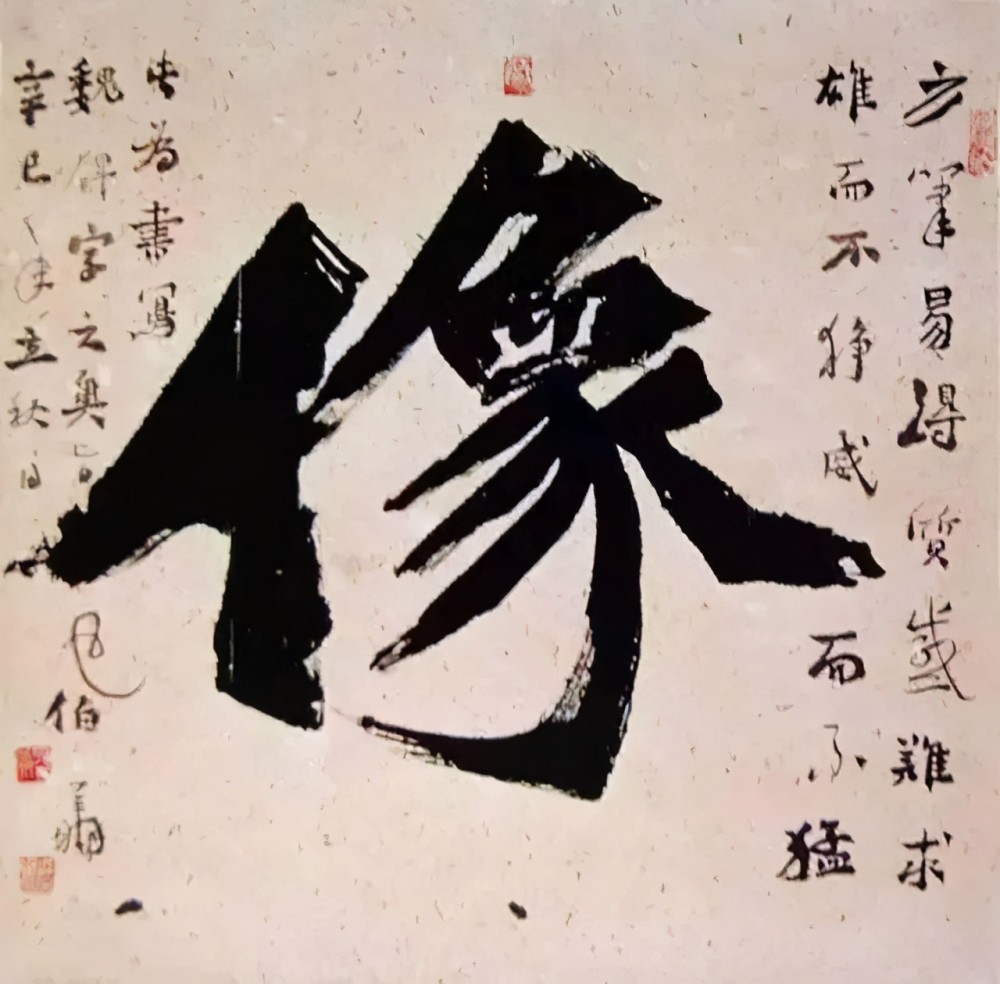 方筆易得質感難求
雄而不猙威而不猛
像
此為書寫
魏碑字之奥旨
辛巳之年立秋日
伯